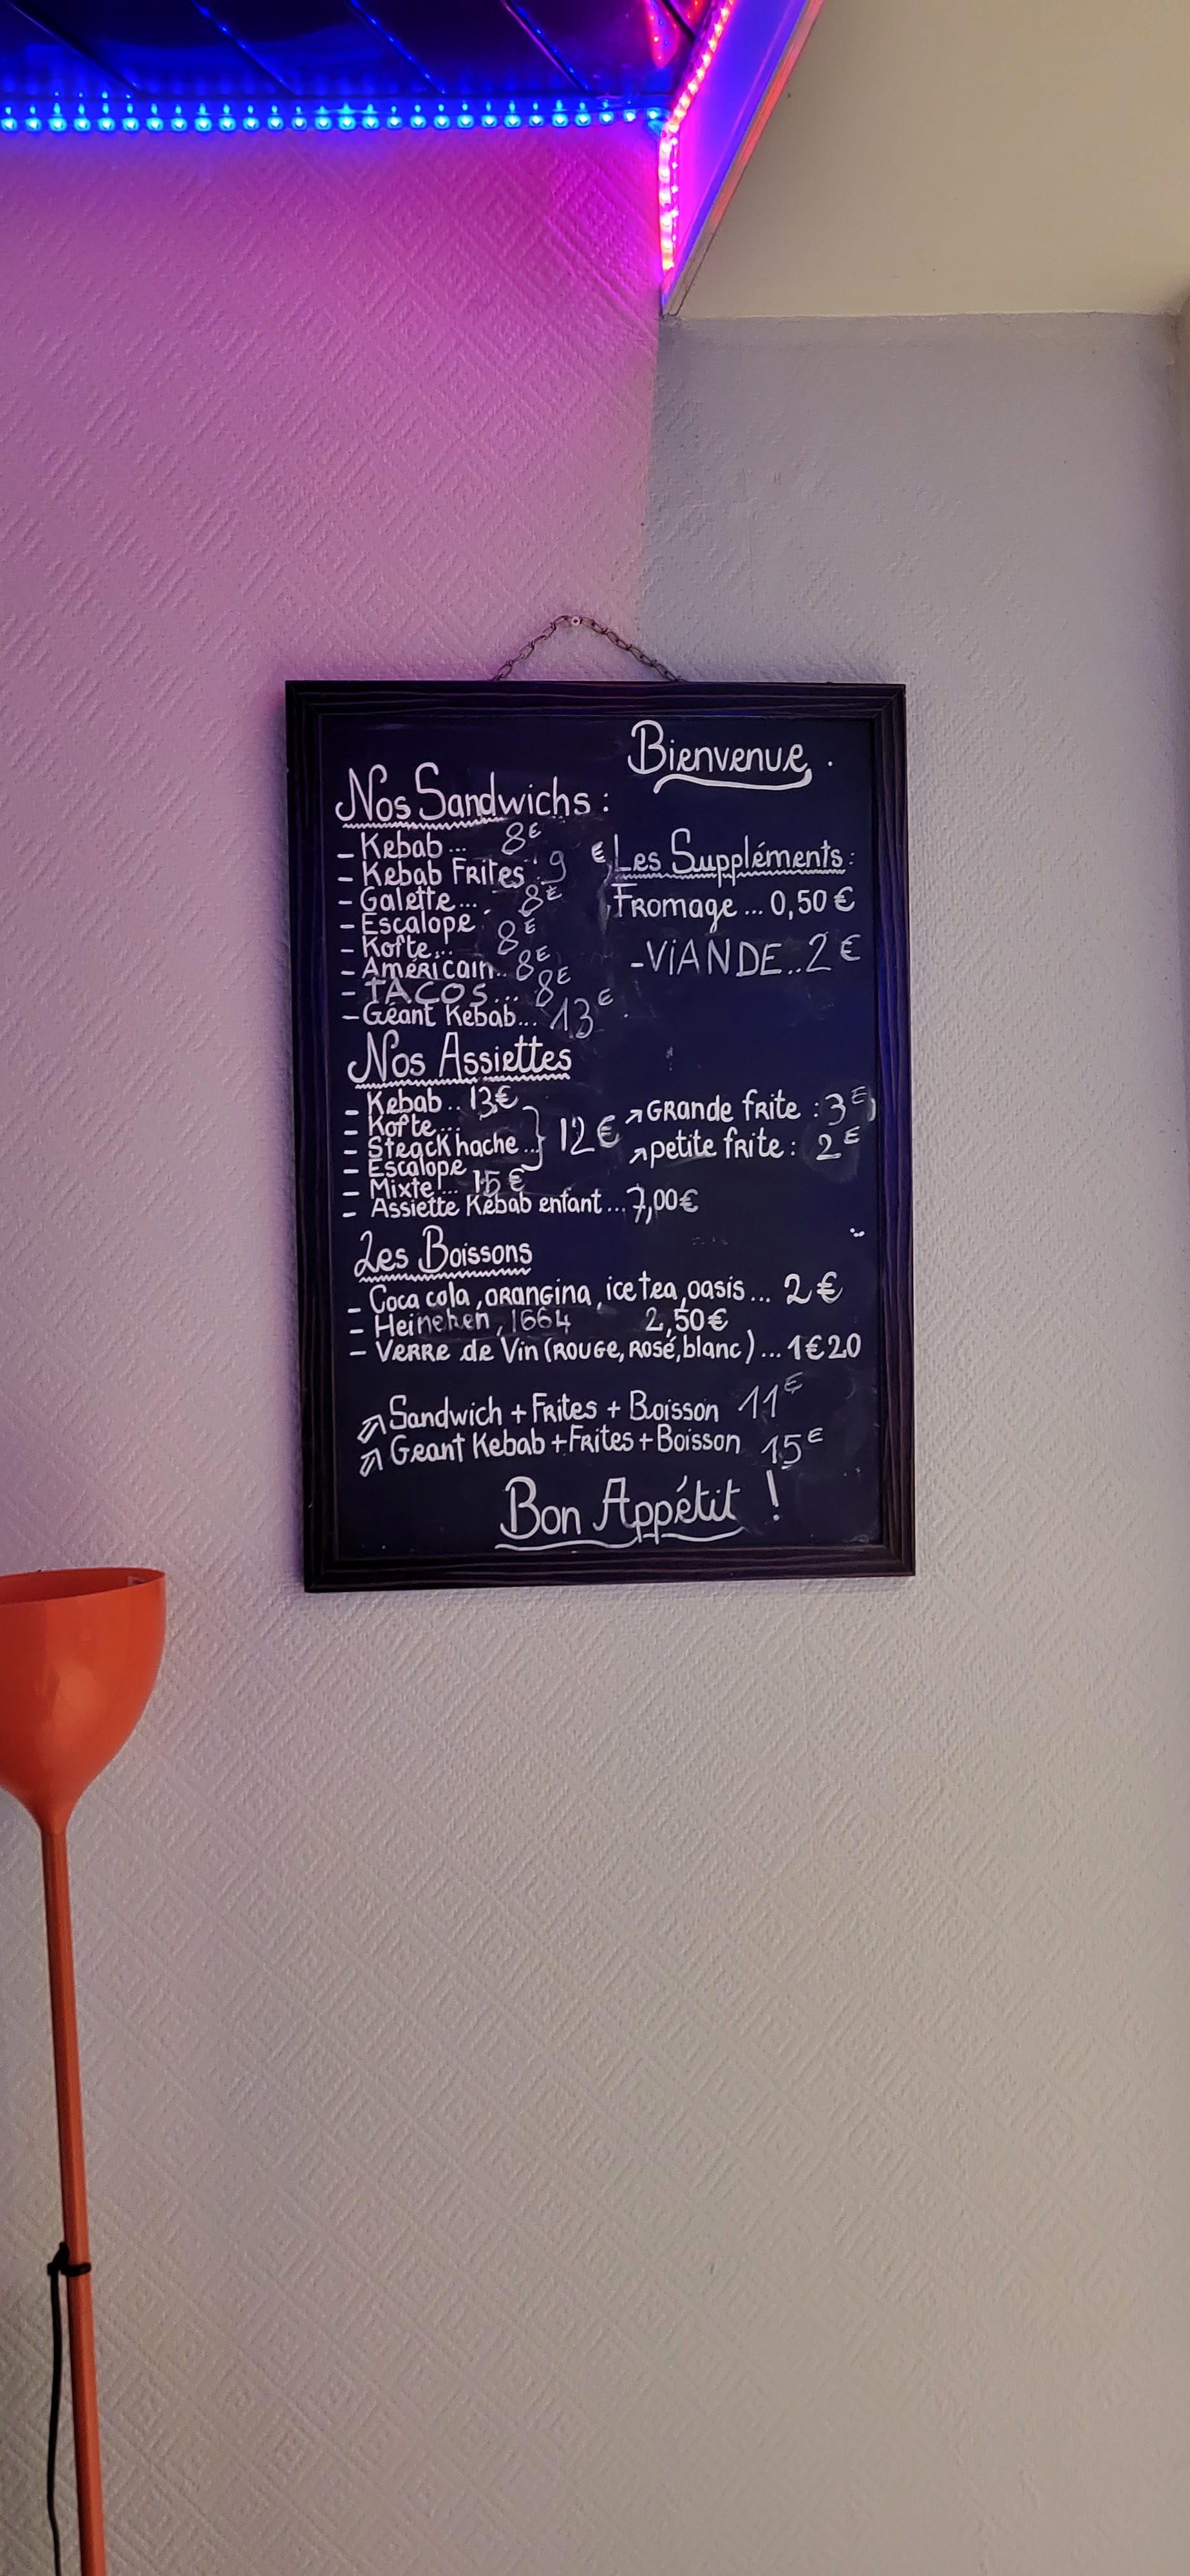 Bienvenue.
Nos Sandwichs :
- Kebab... 8€
- Kebab Frites : 9 €
- Galette... 8€
- Escalope 8€
- Kofte...
- Américain.. 8€
- TACOS... 8€
- Géant Kebab... 13€
Les Suppléments :
Fromage ... 0,50 €
- VIANDE.. 2 €
Nos Assiettes
- Kebab.. 13€
- Kofte...
- Steack hache ... } 12€
- Escalope
- Mixte... 15€
- Assiette Kebab enfant ... 7,00€
↗ Grande frite : 3€
↗ petite frite : 2€
Les Boissons
- Coca cola, orangina, ice tea, oasis ... 2 €
- Heineken, 1664 2,50€
- Verre de Vin (rouge, rosé, blanc) ... 1€20
⇗ Sandwich + Frites + Boisson 11€
⇗ Geant Kebab + Frites + Boisson 15€
Bon Appétit !